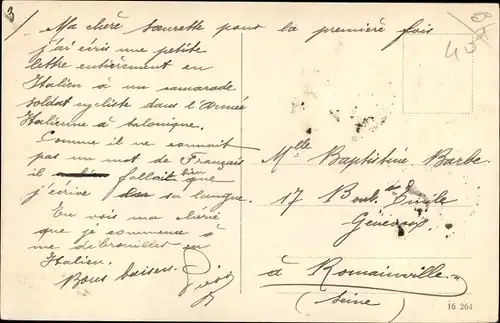 3/
Ma chère sœurette pour la première fois
j'ai écris une petite
lettre entièrement en
Italien à un camarade
soldat cycliste dans l'Armée
Italienne à Salonique.
Comme il ne connait
pas un mot de Français
il fallait bien que
j'écrive sa langue.
Tu vois ma chérie
que je commence à
me débrouiller en
Italien.
Bons baisers.
Mlle Baptistine Barbe
17 Boul. Emile
Genevoix
à Romainville
(Seine)
16 264